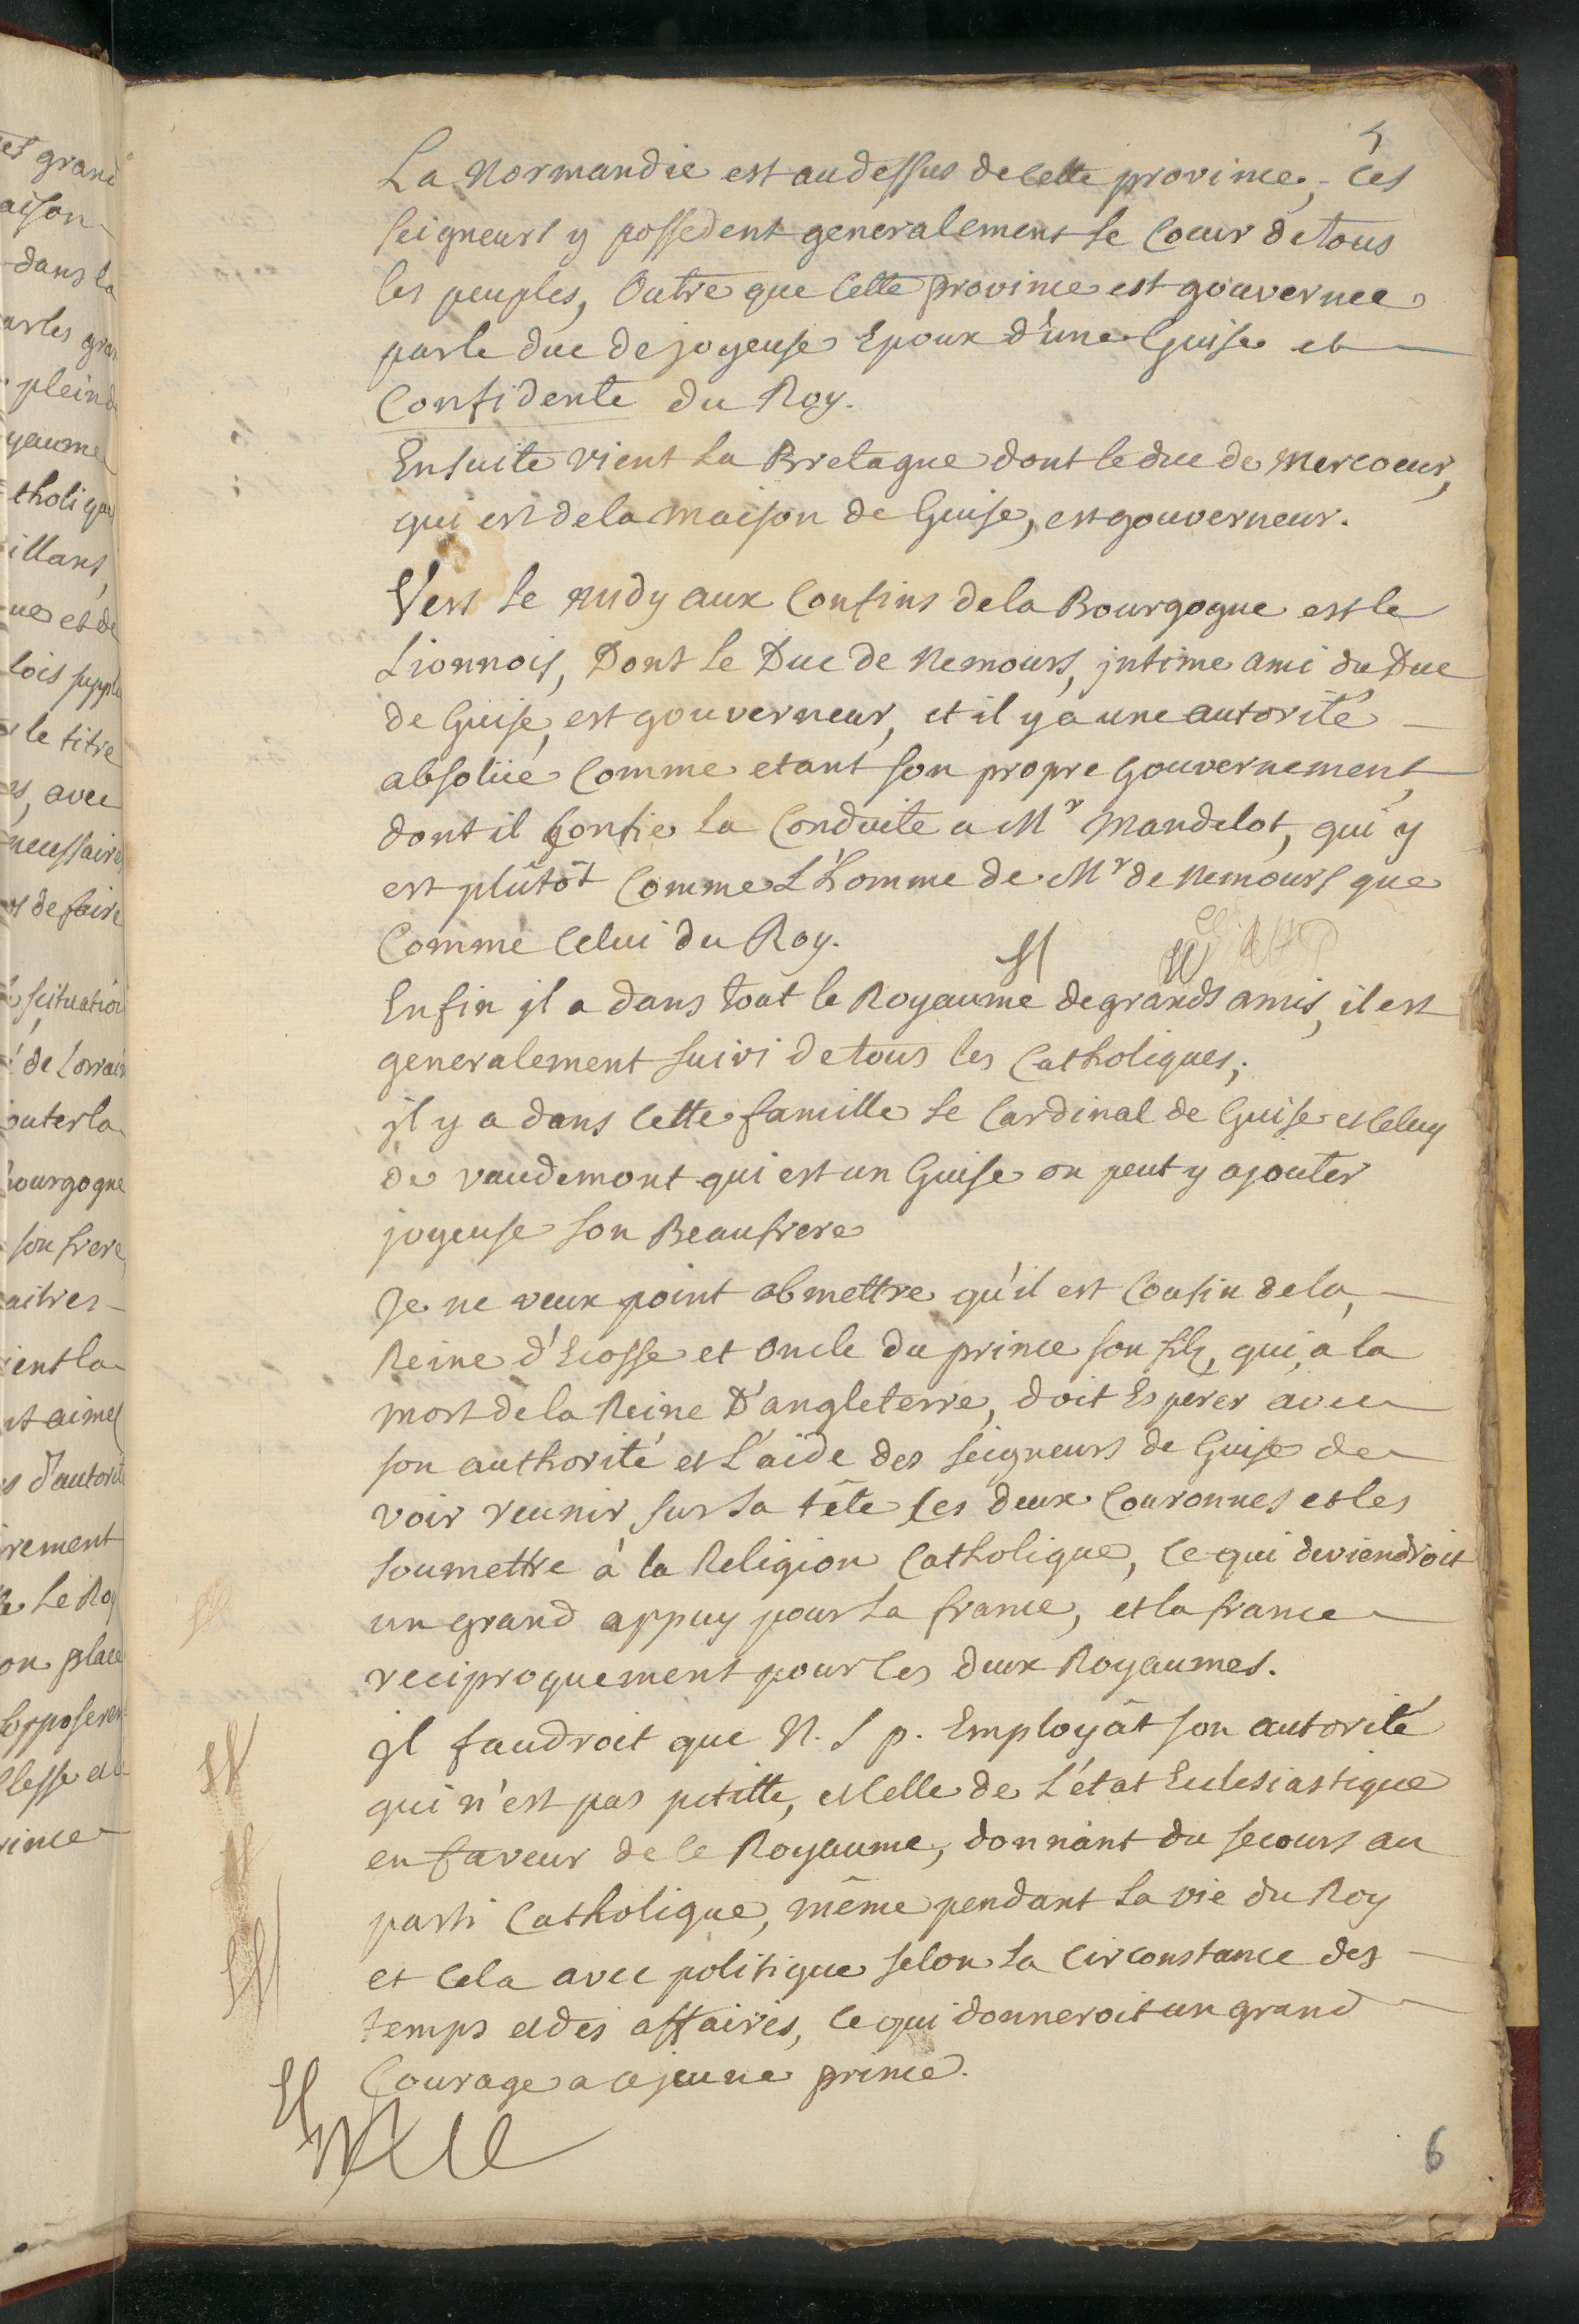 et grand
aison
dans la
ar les gran
plein d
yaume
tholique
illans,
ne et de
lois supple
le titre
es, avec
necessaires
de faire
scituation
de Lorrain
outer la
bourgogne
son frere
aitres
ient la
nt aimes
s d'autorité
rement
Le Roy
on place
lesse et
rince
5
La Normandie est audessus de cette province, ces
seigneurs y possedent generalement le Coeur de tous
les peuples, Outre que cette province est gouvernee
par le duc de joyeuse Epoux d'une Guise et
Confidente du Roy.
Ensuite vient La Bretagne dont le duc de Mercoeur,
qui est de la maison de Guise, est gouverneur.
Vers le midy aux Confins de la Bourgogne est le
Lionnois, Dont le Duc de Nemours, jntime ami du Duc
de Guise, est gouverneur, et il y a une autorité
absolüe Comme etant son propre Gouvernement,
dont il confie la Conduite a Mr Mandelot, qui y
est plûtôt Comme L'homme de Mr de Nemours que
Comme celui du Roy.
Enfin jl a dans tout le Royaume de grands amis, il est
generalement suivi de tous les Catholiques;
jl y a dans cette famille le Cardinal de Guise et Celuy
de vaudemont qui est un Guise on peut y ajouter
joyeuse son Beaufrere
Je ne veux point obmettre qu'il est Cousin de la,
Reine d'Ecosse et Oncle du prince son filz, qui, a la
mort de la Reine D'angleterre, doit Esperer avec
son authorité et L'aide des seigneurs de Guise de
voir reunir sur sa tête les deux Couronnes et les
soumettre à la Religion Catholique, ce qui deviendroit
un grand appuy pour la france, et la france
reciproquement pour les deux Royaumes.
jl faudroit que N. S p. Employât son autorité
qui n'est pas petitte, et Celle de L'état Eclesiastique
en faveur de ce Royaume, donnant du secours au
parti Catholique, même pendant La vie du Roy
et cela avec politique selon La Circonstance des
temps et des affaires, ce qui donneroit un grand
Courage a ce jeune prince.
6